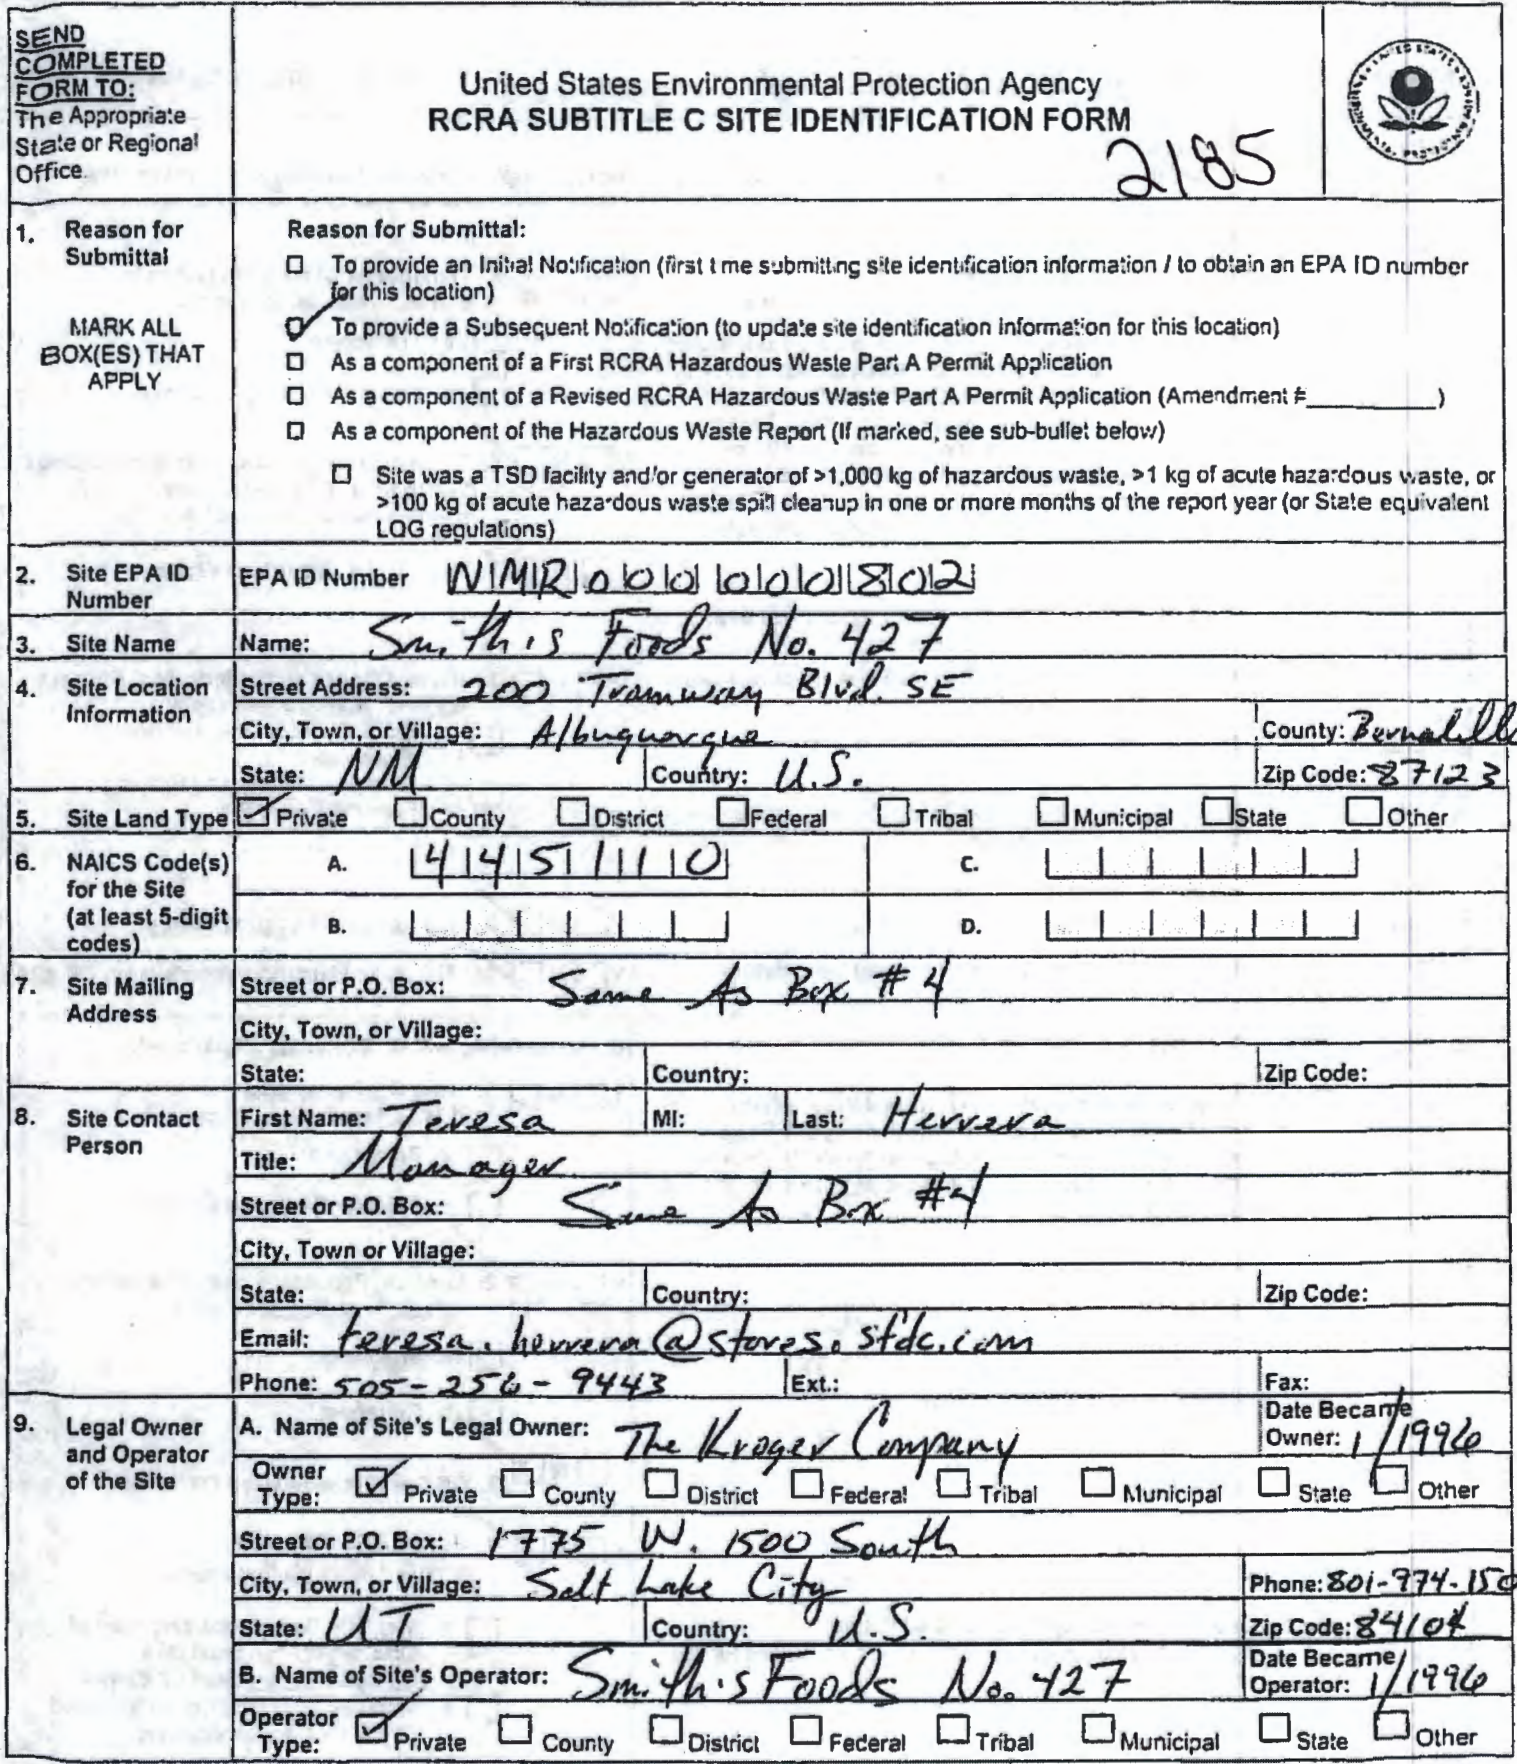 SEND
COMPLETED
FORM TO:
The Appropriate
State or Regional
Office.
United States Environmental Protection Agency
RCRA SUBTITLE C SITE IDENTIFICATION FORM
2185
1. Reason for
Submittal
MARK ALL
BOX(ES) THAT
APPLY
Reason for Submittal:
☐ To provide an Initial Notification (first time submitting site identification information / to obtain an EPA ID number
for this location)
☑ To provide a Subsequent Notification (to update site identification information for this location)
☐ As a component of a First RCRA Hazardous Waste Part A Permit Application
☐ As a component of a Revised RCRA Hazardous Waste Part A Permit Application (Amendment #__________)
☐ As a component of the Hazardous Waste Report (If marked, see sub-bullet below)
☐ Site was a TSD facility and/or generator of >1,000 kg of hazardous waste, >1 kg of acute hazardous waste, or
>100 kg of acute hazardous waste spill cleanup in one or more months of the report year (or State equivalent
LQG regulations)
2. Site EPA ID
Number
EPA ID Number NMR000000802
3. Site Name Name: Smith's Foods No. 427
4. Site Location
Information
Street Address: 200 Tramway Blvd. SE
City, Town, or Village: Albuquerque County: Bernalillo
State: NM Country: U.S. Zip Code: 87123
5. Site Land Type ☑ Private ☐ County ☐ District ☐ Federal ☐ Tribal ☐ Municipal ☐ State ☐ Other
6. NAICS Code(s)
for the Site
(at least 5-digit
codes)
A. 445110 C.
B. D.
7. Site Mailing
Address
Street or P.O. Box: Same As Box #4
City, Town, or Village:
State: Country: Zip Code:
8. Site Contact
Person
First Name: Teresa MI: Last: Herrera
Title: Manager
Street or P.O. Box: Same As Box #4
City, Town or Village:
State: Country: Zip Code:
Email: teresa.herrera@stores.sfdc.com
Phone: 505-256-9443 Ext.: Fax:
9. Legal Owner
and Operator
of the Site
A. Name of Site's Legal Owner: The Kroger Company Date Became
Owner: 1/1996
Owner
Type: ☑ Private ☐ County ☐ District ☐ Federal ☐ Tribal ☐ Municipal ☐ State ☐ Other
Street or P.O. Box: 1775 W. 1500 South
City, Town, or Village: Salt Lake City Phone: 801-974-150
State: UT Country: U.S. Zip Code: 84104
B. Name of Site's Operator: Smith's Foods No. 427 Date Became
Operator: 1/1996
Operator
Type: ☑ Private ☐ County ☐ District ☐ Federal ☐ Tribal ☐ Municipal ☐ State ☐ Other